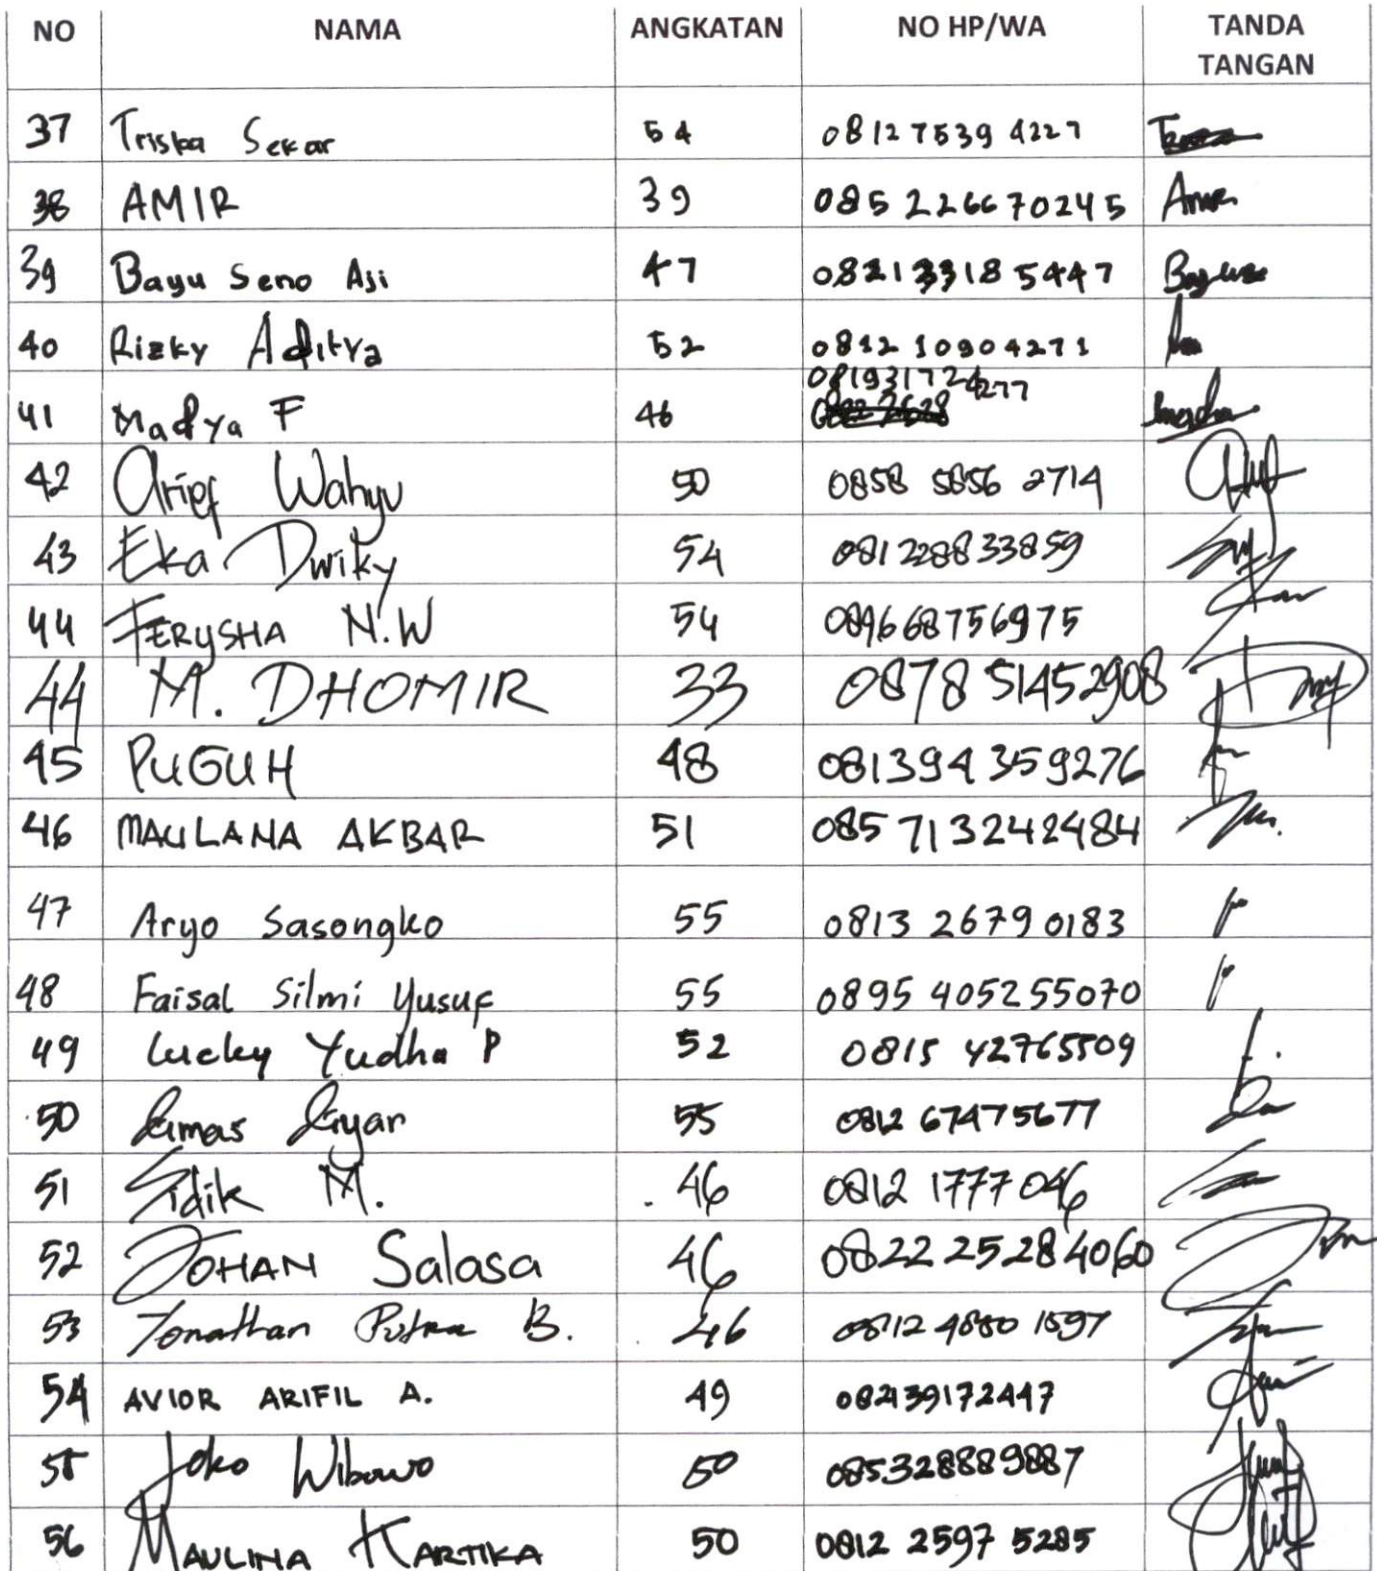 NO NAMA ANGKATAN NO HP/WA TANDA TANGAN
37 Triska Sekar 54 0812 7539 4227
38 AMIR 39 085 226670245 Amir
39 Bayu Seno Aji 47 082133185447
40 Rizky Aditya 52 0812 10904271
41 Madya F 46 081931724277
42 Arief Wahyu 50 0858 5856 2714
43 Eka Dwiky 54 081228833859
44 FERYSHA N.W 54 089668756975
44 M. DHOMIR 33 0878 51452908
45 PUGUH 48 081394359276
46 MAULANA AKBAR 51 085 713242484
47 Aryo Sasongko 55 0813 2679 0183
48 Faisal Silmi Yusuf 55 0895 405255070
49 Lucky Yudha P 52 0815 42765509
50 Dimas Gyar 55 0812 67475677
51 Sidik M. 46 0812 1777 046
52 JOHAN Salasa 46 0822 25284060
53 Jonathan Putra B. 46 0812 4880 1597
54 AVIOR ARIFIL A. 49 082139172447
55 Joko Wibowo 50 085328889887
56 MAULINA KARTIKA 50 0812 2597 5285